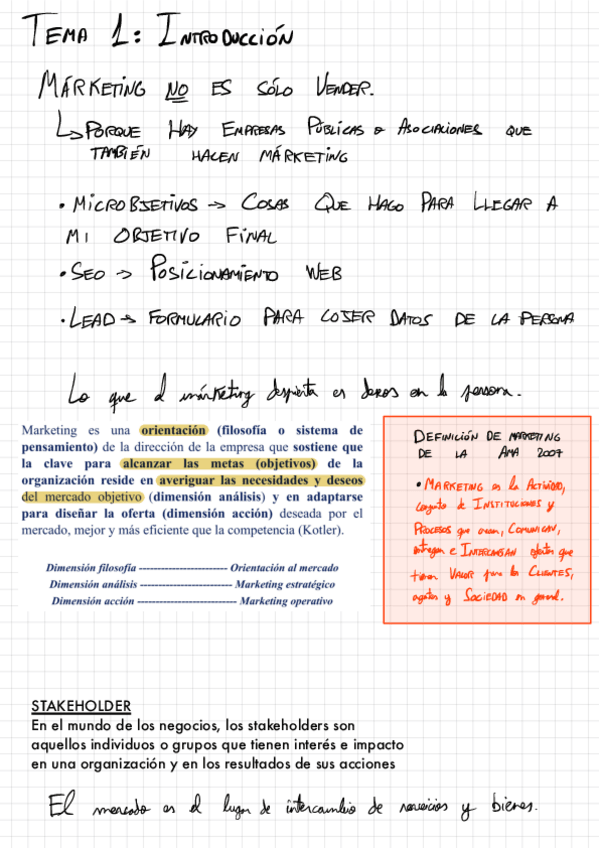 TEMA 1: INTRODUCCIÓN
MÁRKETING NO ES SÓLO VENDER.
↳ PORQUE HAY EMPRESAS PÚBLICAS O ASOCIACIONES QUE
TAMBIÉN HACEN MÁRKETING
• MICROBJETIVOS → COSAS QUE HAGO PARA LLEGAR A
MI OBJETIVO FINAL
• SEO → POSICIONAMIENTO WEB
• LEAD → FORMULARIO PARA COJER DATOS DE LA PERSONA
Lo que el márketing despierta es deseos en la persona.
Marketing es una orientación (filosofía o sistema de
pensamiento) de la dirección de la empresa que sostiene que
la clave para alcanzar las metas (objetivos) de la
organización reside en averiguar las necesidades y deseos
del mercado objetivo (dimensión análisis) y en adaptarse
para diseñar la oferta (dimensión acción) deseada por el
mercado, mejor y más eficiente que la competencia (Kotler).
Dimensión filosofía ------------------------ Orientación al mercado
Dimensión análisis ------------------------- Marketing estratégico
Dimensión acción --------------------------- Marketing operativo
DEFINICIÓN DE MARKETING
DE LA AMA 2007
• MARKETING es la ACTIVIDAD,
conjunto de INSTITUCIONES y
PROCESOS que crean, COMUNICAN,
entregan e INTERCAMBIAN ofertas que
tienen VALOR para los CLIENTES,
agentes y SOCIEDAD en general.
STAKEHOLDER
En el mundo de los negocios, los stakeholders son
aquellos individuos o grupos que tienen interés e impacto
en una organización y en los resultados de sus acciones
El mercado es el lugar de intercambio de servicios y bienes.